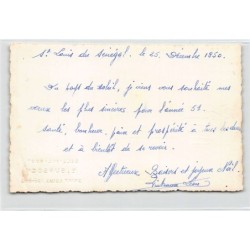 St Louis du Sénégal, le 25 Décembre 1950.
Du pays du soleil, je viens vous souhaite mes
voeux les plus sincères pour l'année 51.
santé, bonheur, joie et prospérité à tous
et à bientôt de se revoir.
Affectueux Baisers et joyeux Noël